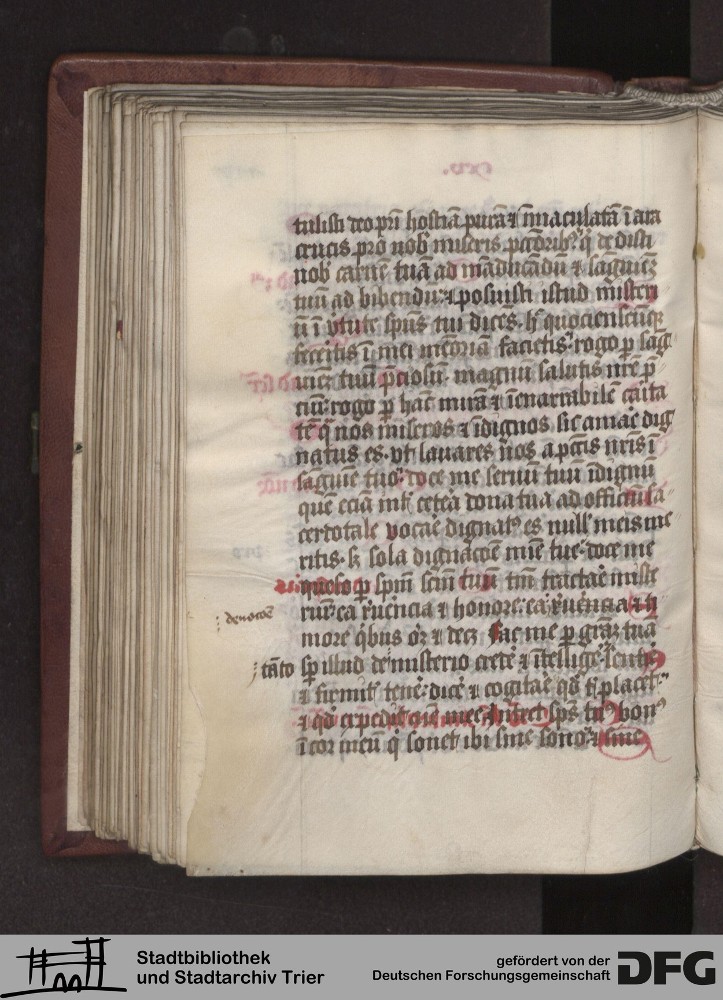 .cxv.
tulisti deo pri hostiā purā ⁊ īmaculatā ī ara
crucis pro nob miseris pctorib⁹. q de disti
nob carnē tuā ad māducādū ⁊ sāguinē
tuū ad bibendū: ⁊ posuisti istud misteri
ū ī v̾tute spūs tui dicēs. h quociensc̄ūq
feceritis ī mei memoriā facietis: rogo p sāg
uinē tuū p̄ciosū. magnū salutis nr̄e p̄
ciū: rogo p hāc mirā ⁊ īenarrabilē carita
tē q nos miseros ⁊ īdignos sic amae dig
natus es. vt lauares nos a pctis nris ī
sāguine tuo: doce me seruū tuū īdignū
quē eciā int cetera dona tua ad officiū sa
cerdotale vocae dignat⁹ es null meis me
ritis. s sola dignacōe mie tue: doce me
queso p spm scm tuū tm tractae miste
riū: ea ruēncia ⁊ honore: ea
: deuocōe
more qbus oꝫ ⁊ decꝫ. Fac me p grām tuā
: tāto sp illud de misterio crede ⁊ ītellige. sentir
⁊ firmit tene: dice ⁊ cogitae qd t placet.
⁊ qd expedit aīe mee. Intret spūs tu⁹ bon⁹
ī cor meū q sonet ibi sine sono: ⁊ sine
Stadtbibliothek
und Stadtarchiv Trier
gefördert von der
Deutschen Forschungsgemeinschaft
DFG